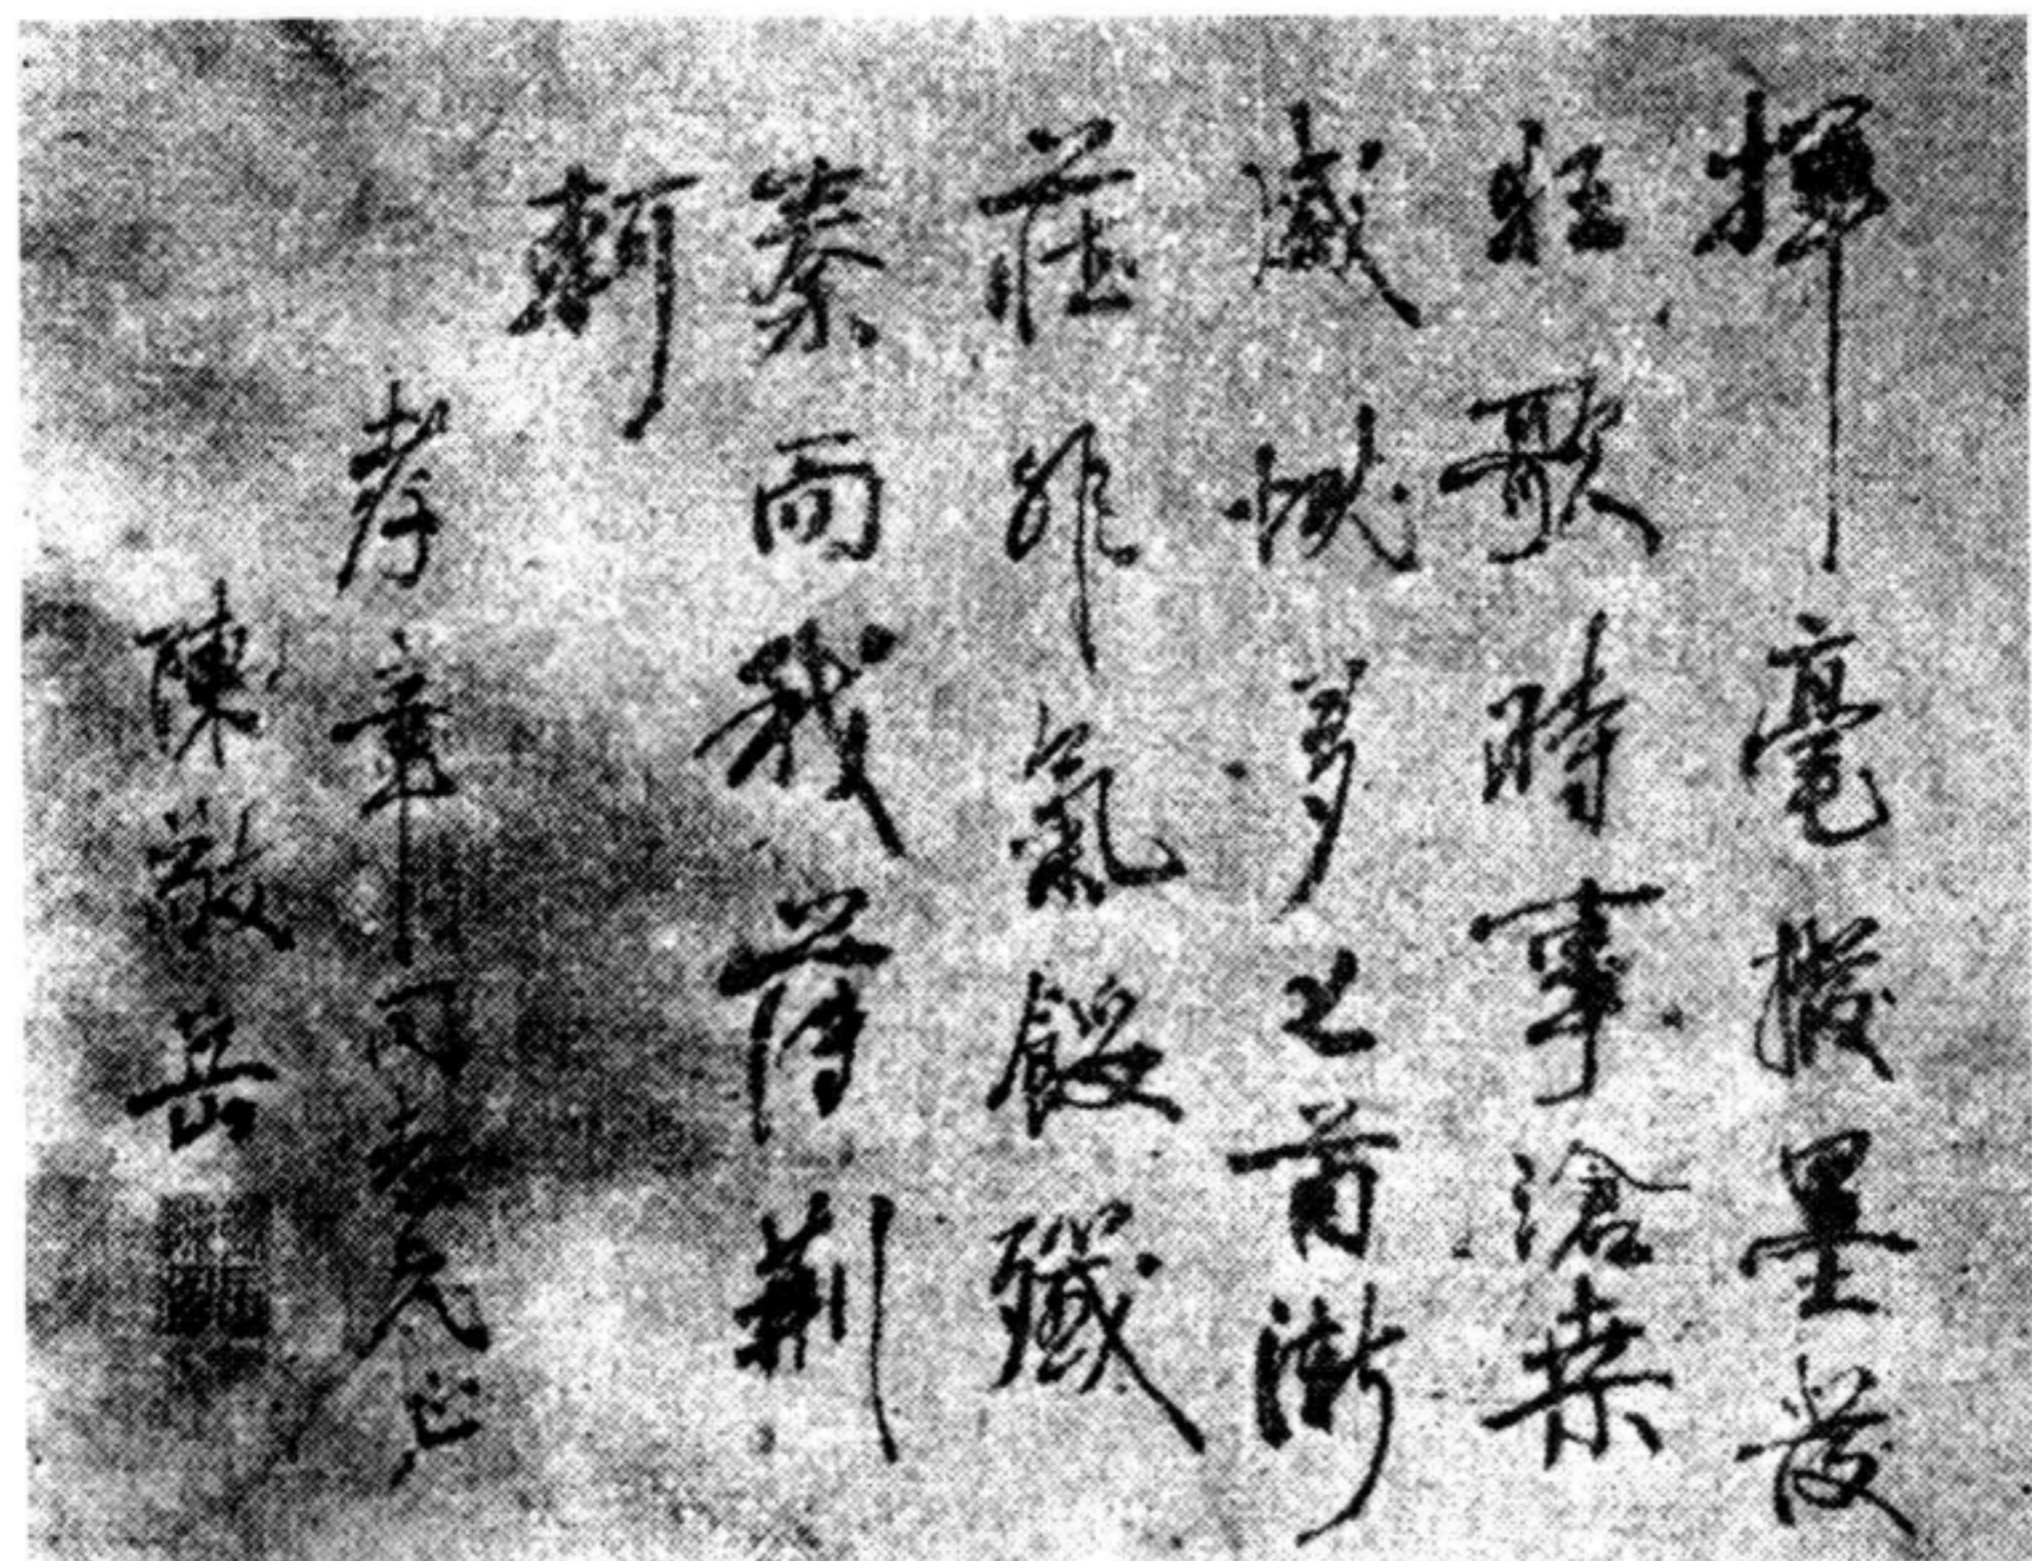 揮毫撥墨發
狂歌時事滄桑
感慨多匕首漸
非氣餒殲
秦而我荐荊
軻
孝章同志兄正
陳敬岳